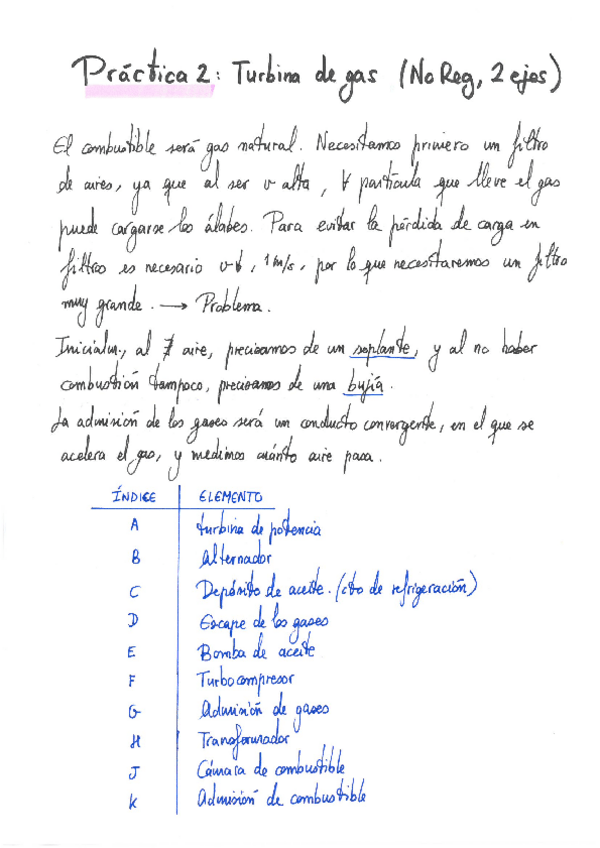 Práctica 2: Turbina de gas (No Reg, 2 ejes)
El combustible será gas natural. Necesitamos primero un filtro
de aires, ya que al ser v alta, ∀ partícula que lleve el gas
puede cargarse los álabes. Para evitar la pérdida de carga en
filtros es necesario v↓, 1 m/s, por lo que necesitaremos un filtro
muy grande. → Problema.
Inicialm., al ∄ aire, precisamos de un soplante, y al no haber
combustión tampoco, precisamos de una bujía.
La admisión de los gases será un conducto convergente, en el que se
acelera el gas, y medimos cuánto aire pasa.
ÍNDICE ELEMENTO
A turbina de potencia
B Alternador
C Depósito de aceite. (cto de refrigeración)
D Escape de los gases
E Bomba de aceite
F Turbocompresor
G Admisión de gases
H Transformador
J Cámara de combustible
K Admisión de combustible